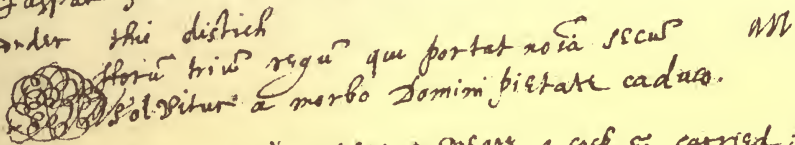 under this distich
Horũ triũ regũ qui portat noĩa secũ
Solvitur a morbo Domini pietate caduco.
a cock & carried